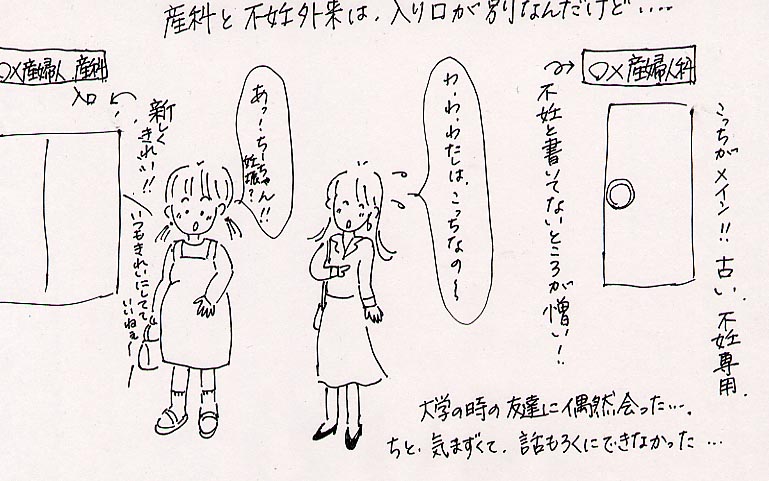 産科と不妊外来は、入り口が別なんだけど‥‥
○×産婦人科
こっちがメイン!!古い、不妊専用.
不妊と書いてないところが憎い!!
わ・わ・わたしは、こっちなの〜
あっ!ちーちゃん!!
妊娠?
○×産婦人 産科
入口
新しく
きれい!!
いつもきれいにしてて
いいねぇ〜
大学の時の友達に偶然会った….
ちと、気まずくて、話もろくにできなかった…